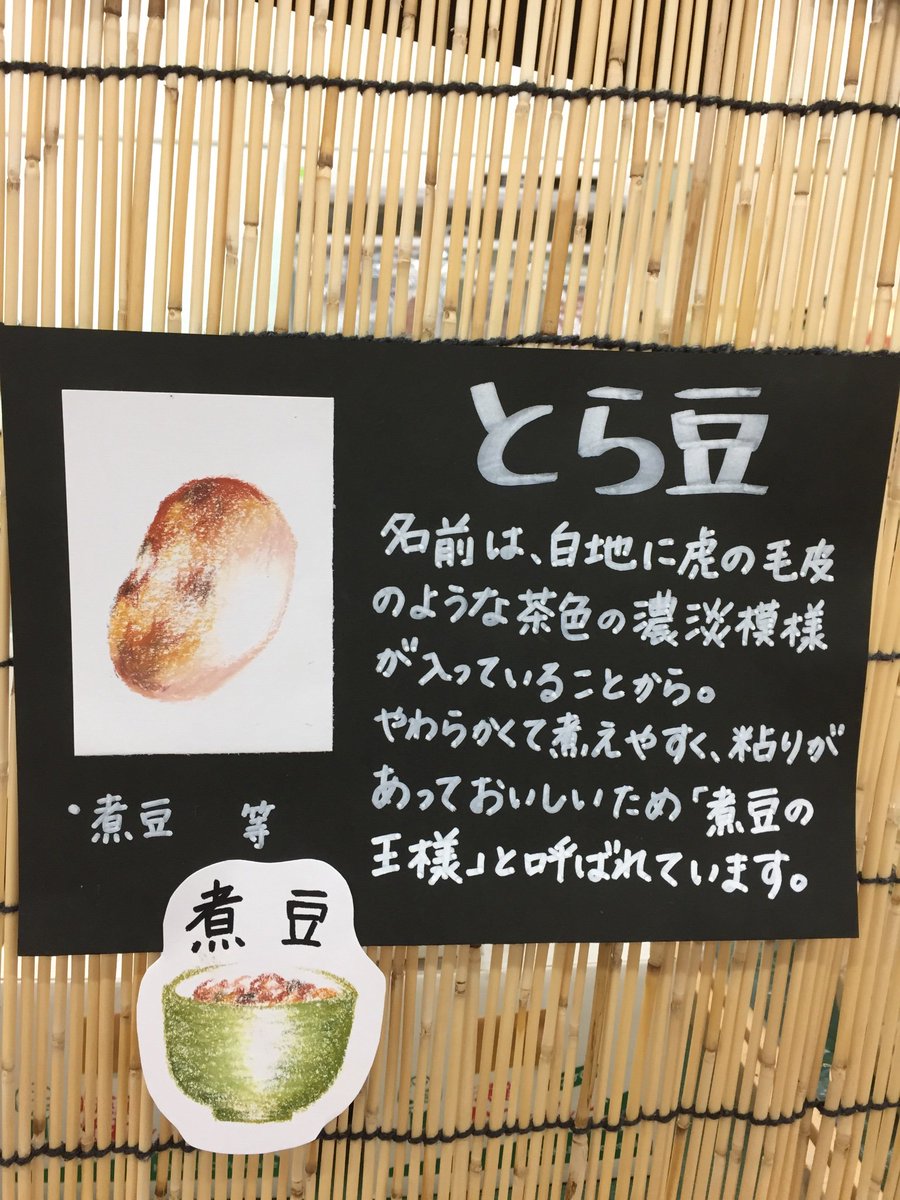 とら豆
名前は、白地に虎の毛皮
のような茶色の濃淡模様
が入っていることから。
やわらかくて煮えやすく、粘りが
あっておいしいため「煮豆の
王様」と呼ばれています。
・煮豆 等
煮豆